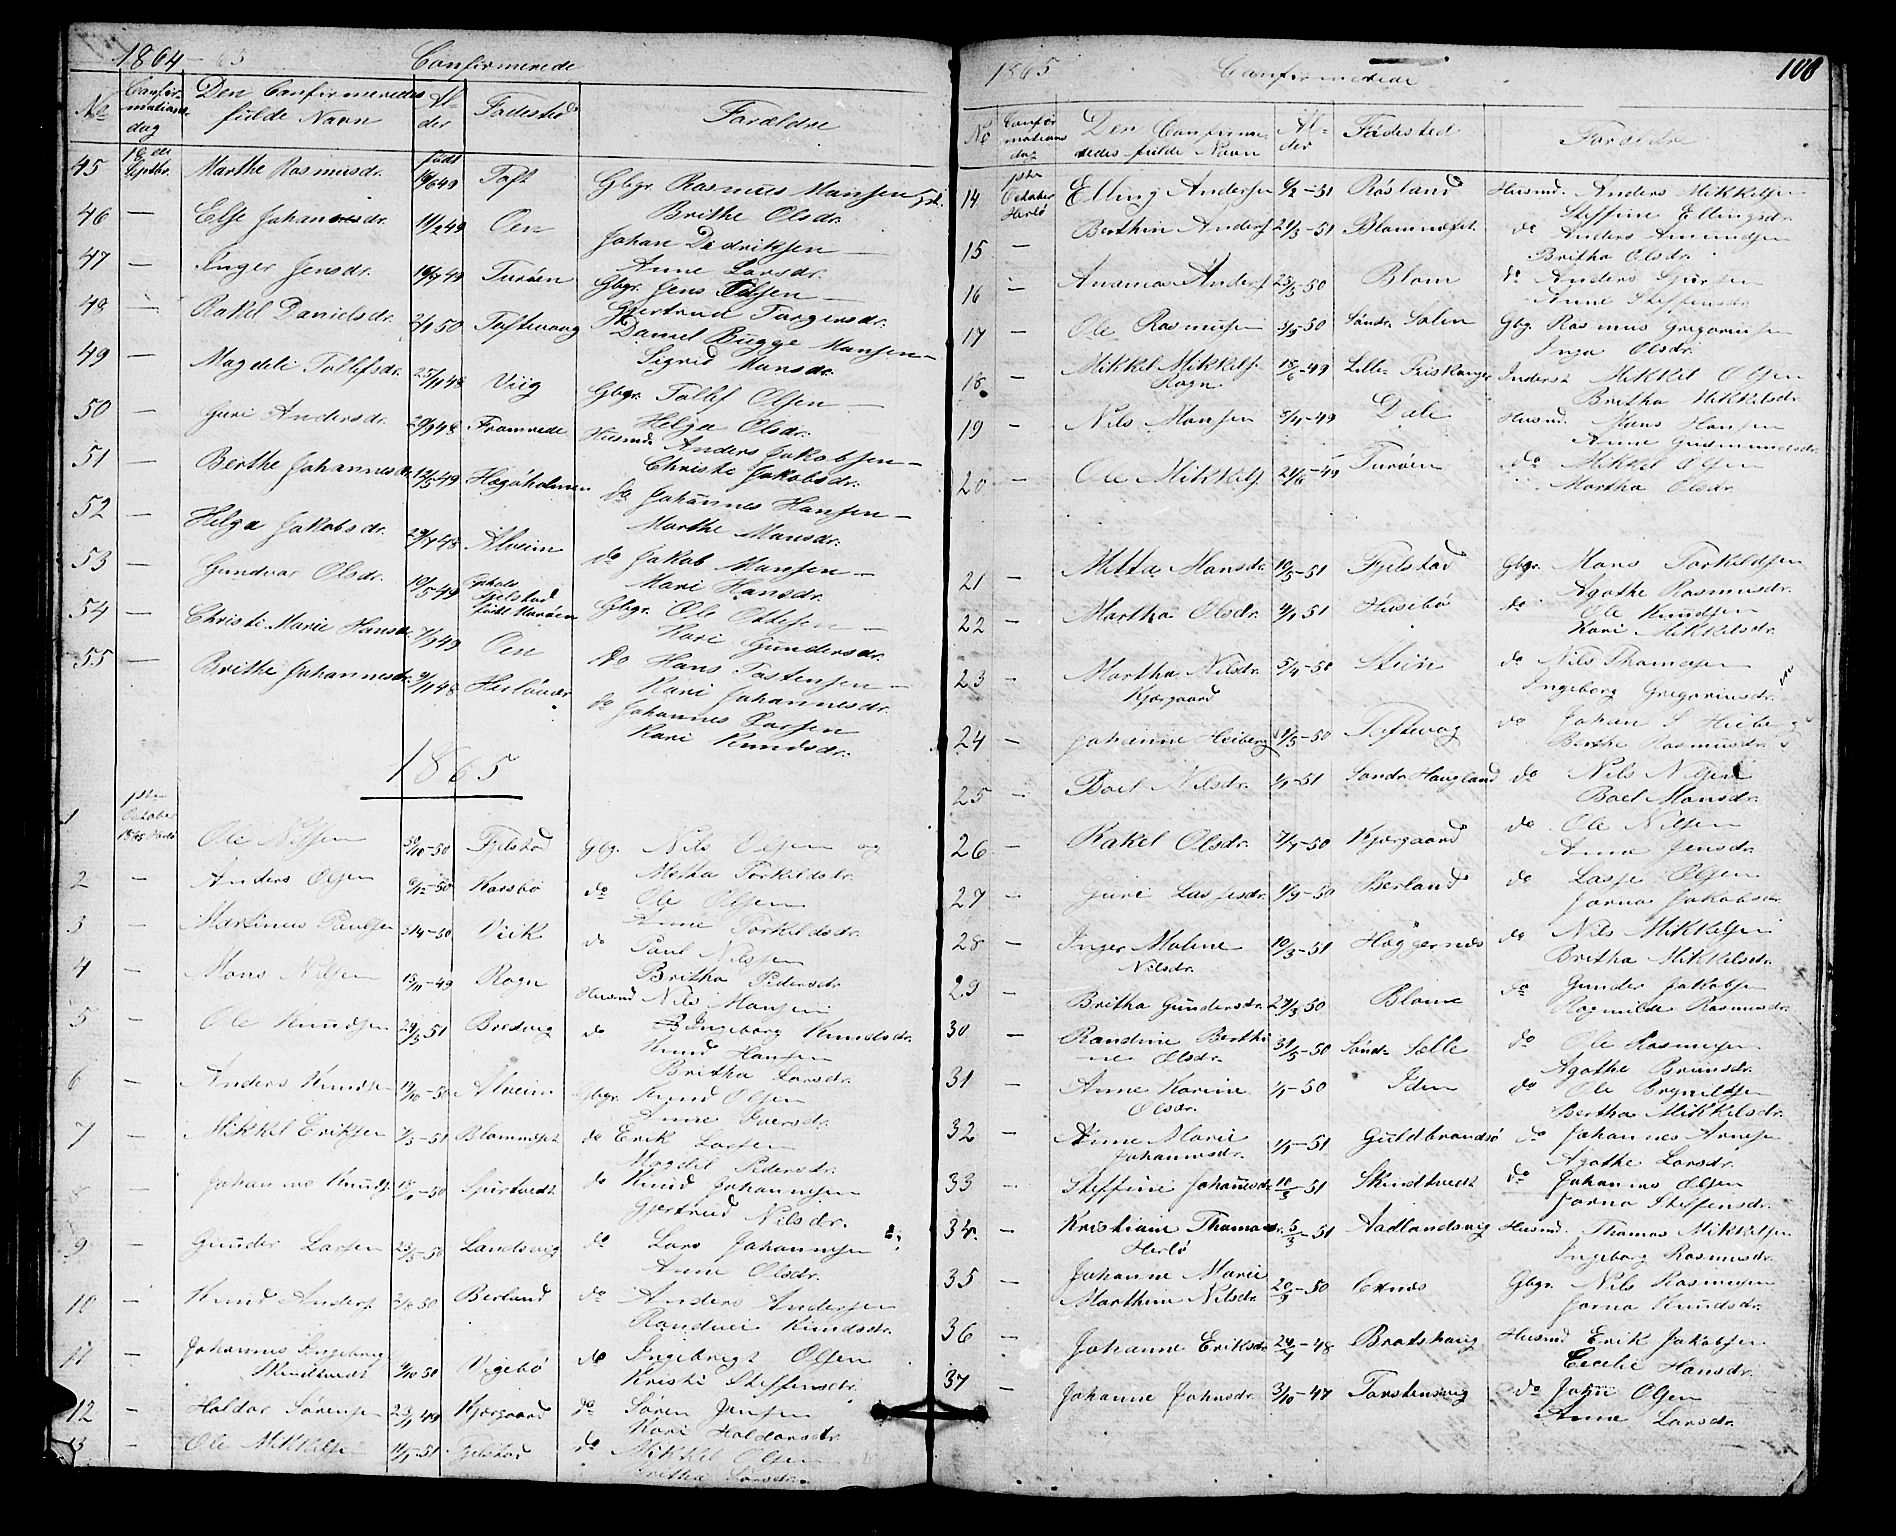 1864-65 Confirmerede
No Confir-mations dag Den Confirmeredes fulde Navn Al-der Fødested Forældre
45 18de Septbr. Marthe Rasmusdr. født Toft Gbgr. Rasmus Mansen
Brithe Olsdr.
46 — Else Johannesdr. 11/2 49 Oen Johan Didriksen —
Anne Larsdr.
47 — Inger Jensdr. Turöen Gbgr. Jens —
Gjertrud Torgersdr.
48 — Rakel Danielsdr. 2/1 50 Toftevaag Daniel Bugge Mansen —
Sigrid Mansdr.
49 — Magdeli Tollefsdr. 25/11 48 Viig Gbgr. Tollef Olsen —
Helga Olsdr.
50 — Guri Andersdr. 29/9 48 Framrede Husmd. Anders Jakobsen —
Christi Jakobsdr.
51 — Berthe Johannesdr. 12/5 49 Høgøholmen do Johannes Hansen —
Marthe Mansdr.
52 — Helga Jakobsdr. 29/7 48 Alveim do Jakob Mansen —
Mari Hansdr.
53 — Gundvor Olsdr. 10/5 49 Ophold Fjelstad født Gbgr. Ole Ottesen —
Kari Gundersdr.
54 — Christi Marie Hansdr 7/9 49 Oen do Hans Tostensen —
Kari Johannesdr.
55 — Brithe Johannesdr. 9/11 48 Herløvær do Johannes Larsen
Kari Knudsdr.
1865
1 1ste October 1865 Ole Nilsen 30/10-50 Fjelstad Gbg. Nils Olsen og
Metha Torkildsdr.
2 — Anders Olsen 9/12-50 Karsbø do Ole Olsen
Anne Torkildsdr.
3 — Martinus Paulsen 3/4-50 Viik do Paul Nilsen
Britha Pedersdr.
4 — Mons Nilsen 13/11-49 Rogn Husmd Nils Mansen
Ingeborg Knudsdr.
5 — Ole Knudsen 24/3 51 Bredvig do Knud Hansen
Britha Larsdr.
6 — Anders Knudsen 14/10-50 Alveim Gbgr. Knud Olsen
Anne Iversdr.
7 — Mikkel Eriksen 7/3-51 Blomnæset do Erik Larsen
Magdil Pedersdr.
8 — Johannes Knuds -50 Spurtvedt do Knud Johannesen
Gjertrud Nilsdr.
9 — Gunder Larsen 23/3-50 Landsvig do Lars Johannesen
Anne Olsdr.
10 — Knud Anders. 50 Berland do Anders Andersen
Randvei Knudsdr.
11 — Johannes Ingebrig Skindtvedt 3/10 50 Vigebø do Ingebrigt Olsen
Kristi Steffensdr.
12 — Haldor Sørensen 23/1 49 Kjærgaard do Søren Jensen
Kari Haldorsdr.
13 — Ole Mikkelsen 11/1-51 Fjelstad do Mikkel Olsen
Britha Larsdr.
1865 Confirmerede 108
No Confir mations dag Den Confirme redes fulde Navn Al-der Fødested Forældre
14 1ste October Herlø Elling Andersen 6/2-51 Røsland Husmd. Anders Mikkelsen
Steffine Ellingsdr.
15 — Berthin Anders 21/3-51 Blomnæset do Anders Amundsen
Britha Olsdr.
16 — Ananias Anders 23/5-50 Blom do Anders
Anne Steffensdr.
17 — Ole Rasmusen 3/9-50 Söndr. Solen Gbg. Rasmus Gregoriusen
Inga Olsdr.
18 — Mikkel Mikkels Rogn 18/6-49 Lille Friskanger Inderst Mikkel Olsen
Britha Mikkelsdr.
19 — Nils Mansen 5/4-49 Dale Husmd. Mans Hansen
Anne Gudmundsdr.
20 — Ole Mikkels 21/6-49 Turöen do Mikkel Olsen
Martha Olsdr.
21 — Metta Monsdr. 10/5-51 Fjelstad Gbgr. Mons Torkildsen
Agathe Rasmusdr.
22 — Martha Olsdr. 2/1 51 Husebø do Ole Knudsen
Kari Mikkelsdr.
23 — Martha Nilsdr. Kjærgaard 5/4-50 do Nils Thomasen
Ingeborg Gregoriusdr.
24 — Johanne Heiberg -50 Toftevaag do Johan S Heiberg
Berthe Rasmusdr.
25 — Boel Nilsdr. -51 Söndr. Haugland do Nils Nilsen
Boel Monsdr.
26 — Rakel Olsdr. 7/4-50 Kjærgaard do Ole Nilsen
Anna Jensdr.
27 — Guri Lassesdr. 1/9-50 Berland do Lasse Olsen
Jorna Jakobsdr.
28 — Inger Malene Nilsdr. 10/3-51 Høggernes do Nils Mikkelsen
Britha Mikkelsdr.
29 — Britha Gundersdr. 27/3 50 Blome do Gunder Jakobsen
Ragnilde Rasmusdr.
30 — Randine Berthi ne Olsdr. 31/5-50 Söndr Sælle do Ole Rasmusen
Agathe Briansdr.
31 — Anne Karine Olsdr. -50 Iden do Ole Brynildsen
Bertha Mikkelsdr.
32 — Anne Marie Johannesdr. -51 Guldbrandsø do Johannes Arnesen
Agathe Larsdr.
33 — Steffine Johannesdr 10/3-51 Skindtvedt do Johannes Olsen
Jorna Steffensdr.
34. — Kristiane Thomasdr. Herlø 5/3-51 Aadlandsvig Husmd. Thomas Mikkelsen
Ingeborg Rasmusdr.
35 — Johanne Marie Marthine Nilsdr. 20/9-50 Exnes Gbgr. Nils Rasmusen
Jorna Knudsdr.
36 — Johanne Eriksdr 24/7-48 Bratshaug Husmd. Erik Jakobsen
Cecelie Hansdr.
37 — Johanne Johnsdr. 3/10-47 Torstensvig do John Olsen
Anne Larsdr.